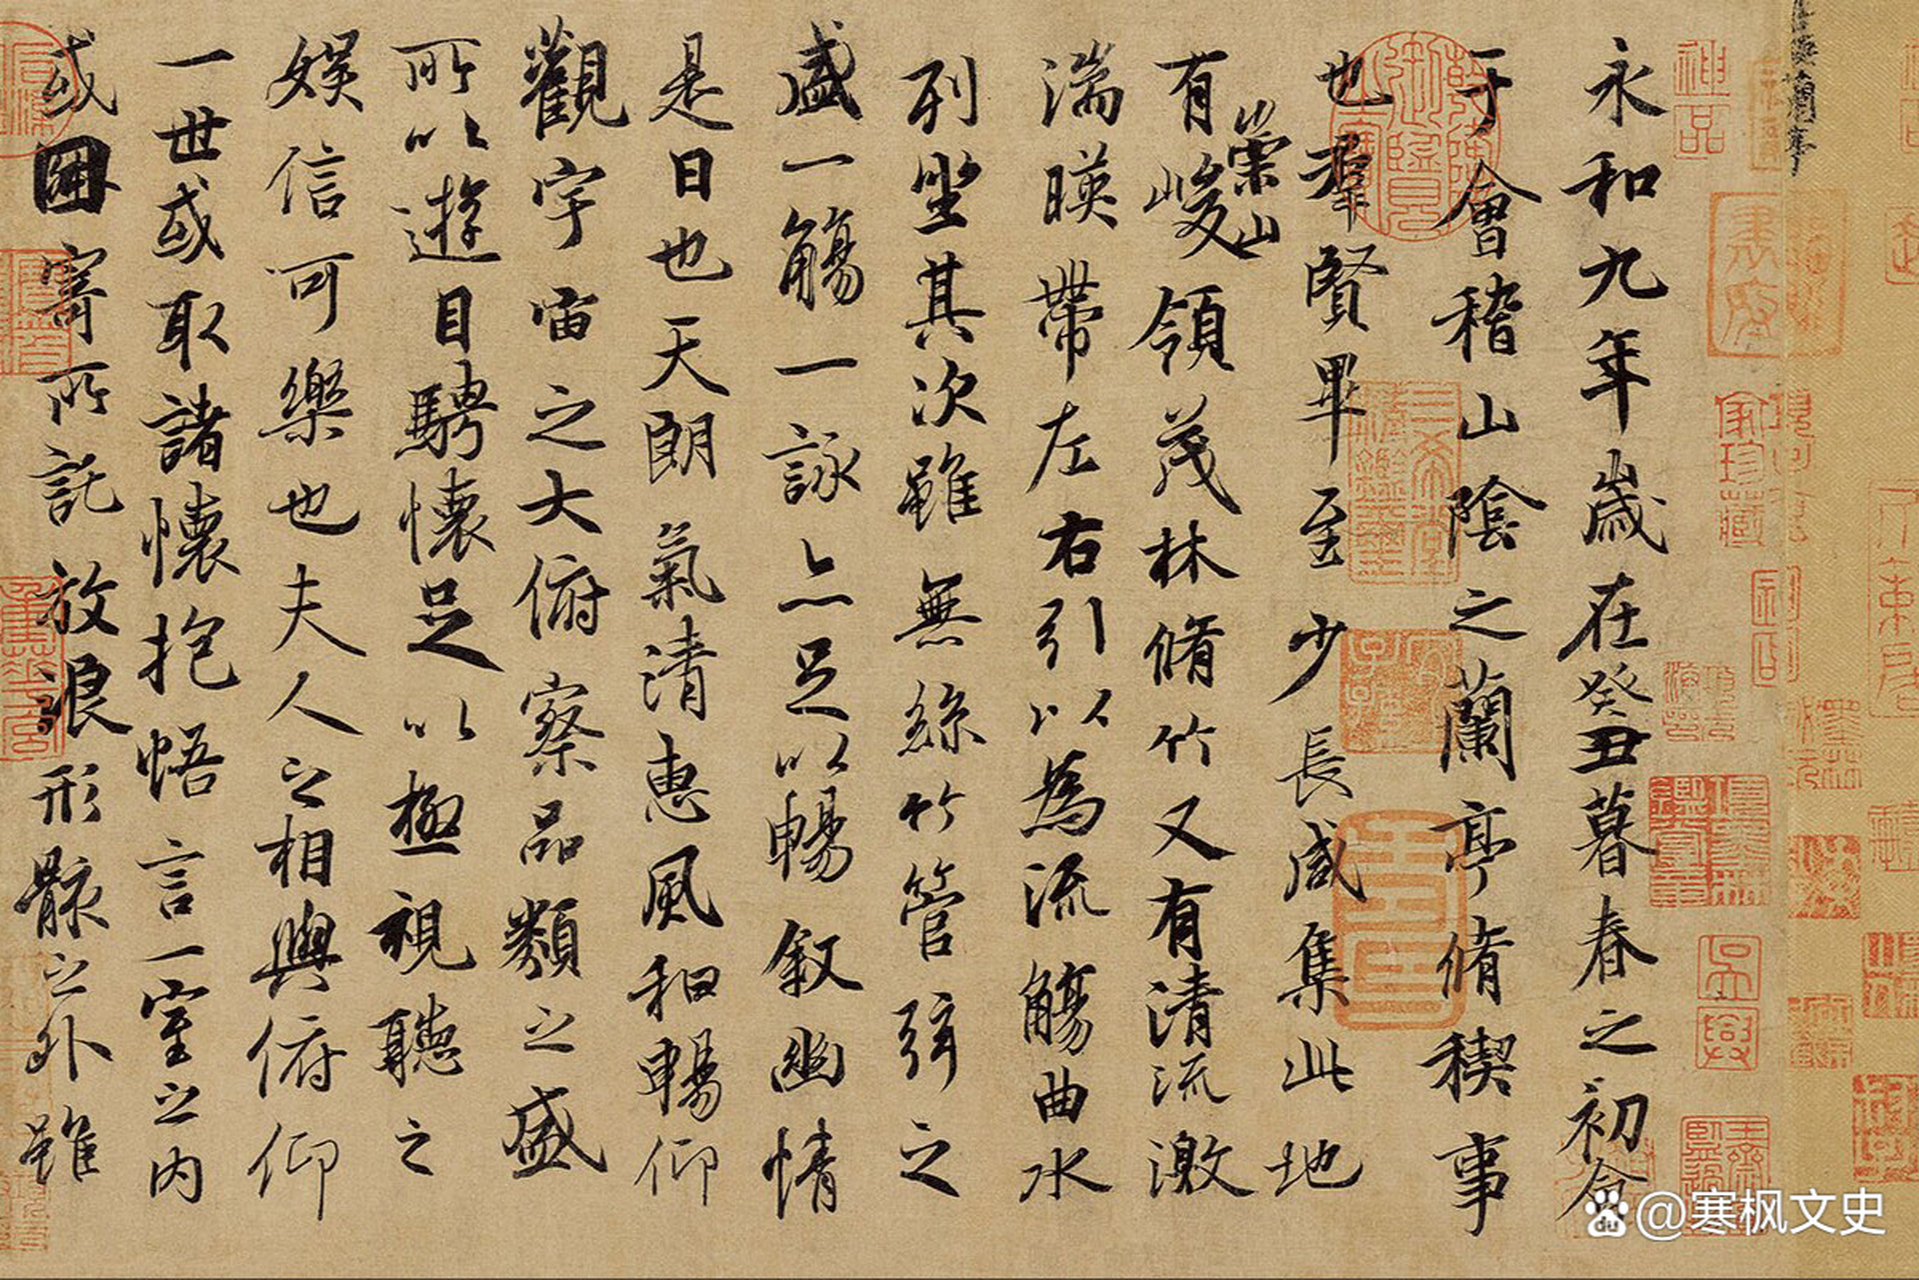 永和九年歲在癸丑暮春之初會
于會稽山陰之蘭亭脩稧事
也羣賢畢至少長咸集此地
有崇山峻領茂林脩竹又有清流激
湍暎帶左右引以為流觴曲水
列坐其次雖無絲竹管弦之
盛一觴一詠亦足以暢敘幽情
是日也天朗氣清惠風和暢仰
觀宇宙之大俯察品類之盛
所以遊目騁懷足以極視聽之
娛信可樂也夫人之相與俯仰
一世或取諸懷抱悟言一室之內
或因寄所託放浪形骸之外雖
神品
@寒枫文史